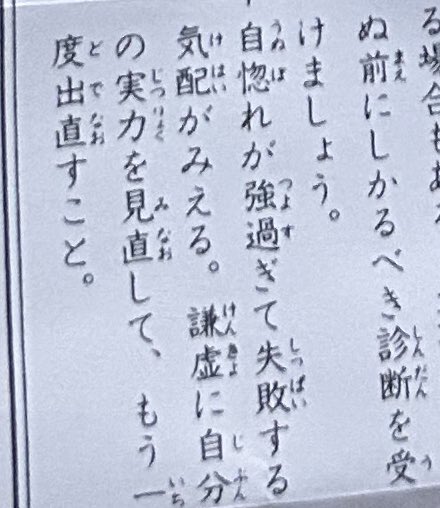 る場合もあ
ぬ前にしかるべき診断を受
けましょう。
自惚れが強過ぎて失敗する
気配がみえる。謙虚に自分
の実力を見直して、もう一
度出直すこと。